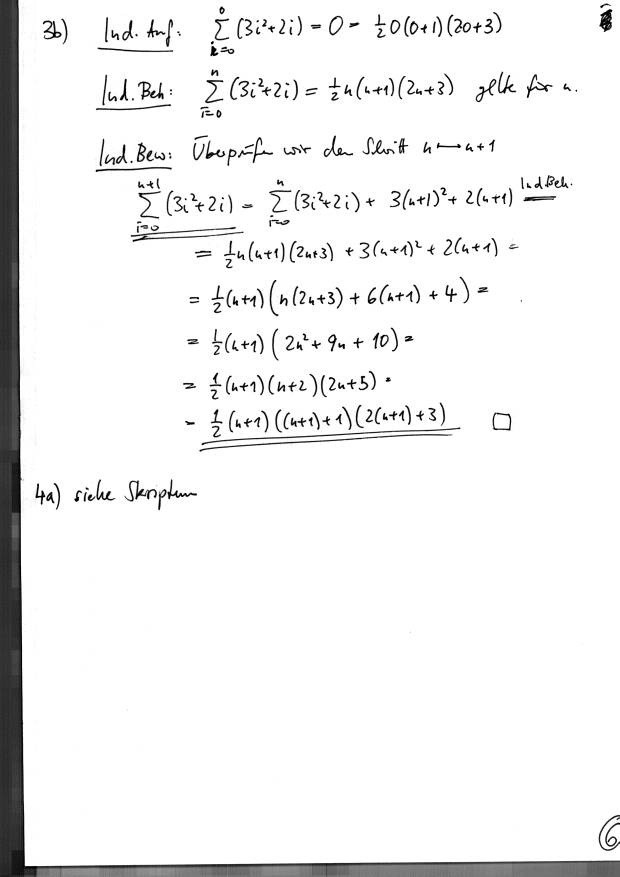 3b) Ind. Anf.: ∑_{i=0}^{0} (3i²+2i) = 0 = ½0(0+1)(20+3)
Ind. Beh: ∑_{i=0}^{n} (3i²+2i) = ½n(n+1)(2n+3) gelte für n.
Ind. Bew: Überprüfen wir den Schritt n ↦ n+1
∑_{i=0}^{n+1} (3i²+2i) = ∑_{i=0}^{n} (3i²+2i) + 3(n+1)² + 2(n+1) Ind Beh. =
= ½n(n+1)(2n+3) + 3(n+1)² + 2(n+1) =
= ½(n+1)(n(2n+3) + 6(n+1) + 4) =
= ½(n+1)(2n² + 9n + 10) =
= ½(n+1)(n+2)(2n+5) =
= ½(n+1)((n+1)+1)(2(n+1)+3) □
4a) siehe Skriptum
6